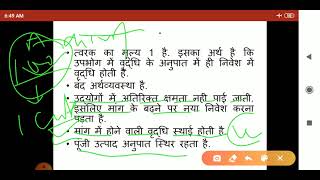 6:49 AM
त्वरक का मूल्य 1 है. इसका अर्थ है कि
उपभोग में वृद्धि के अनुपात में ही निवेश में
वृद्धि होती है.
बंद अर्थव्यवस्था है.
उद्योगों में अतिरिक्त क्षमता नही पाई जाती,
इसलिए मांग के बढ़ने पर नया निवेश करना
पड़ता है.
मांग में होने वाली वृद्धि स्थाई होती है.
पूंजी उत्पाद अनुपात स्थिर रहता है.